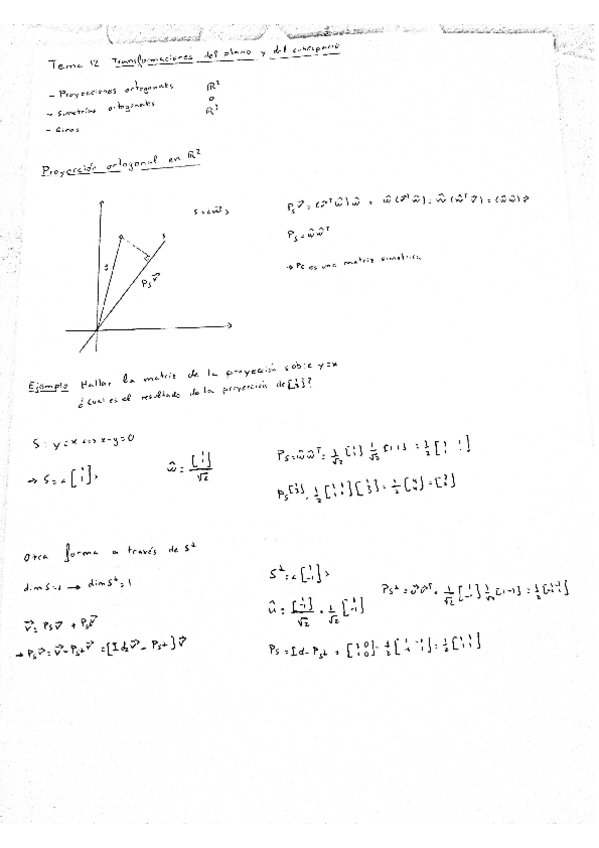 Tema 12 Transformaciones del plano y del subespacio
- Proyecciones ortogonales ℝ²
- Simetrías ortogonales o
- Giros ℝ³
Proyección ortogonal en ℝ²
S=<w⃗>
S
P_S v⃗
P_S v⃗ = (v⃗ᵀŵ)ŵ = ŵ(v⃗ᵀŵ) = ŵ(ŵᵀv⃗) =
P_S = ŵŵᵀ
→ P_S es una matriz simétrica
Ejemplo Hallar la matriz de la proyección sobre y=x
¿Cual es el resultado de la proyección de [1 3]?
S: y=x <=> x-y=0
→ S=<[1 1]>
ŵ = [1 1]/√2
P_S = ŵŵᵀ = 1/√2 [1 1] 1/√2 [1 1] = 1/2 [1 1; 1 1]
P_S [1 3] = 1/2 [1 1; 1 1] [1 3] = 1/2 [4 4] = [2 2]
Otra forma a través de S⊥
dim S=1 → dim S⊥=1
v⃗ = P_S v⃗ + P_S⊥ v⃗
→ P_S v⃗ = v⃗ - P_S⊥ v⃗ = [Id v⃗ - P_S⊥] v⃗
S⊥ = <[1 -1]>
û = [1 -1]/√2 = 1/√2 [1 -1]
P_S⊥ = 1/√2 [1 -1] 1/√2 [1 -1] = 1/2 [1 -1; -1 1]
P_S = Id - P_S⊥ = [1 0; 0 1] - 1/2 [1 -1; -1 1] = 1/2 [1 1; 1 1]